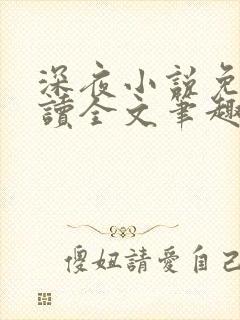 深夜小說免
讀全文筆趣
傻妞請愛自己